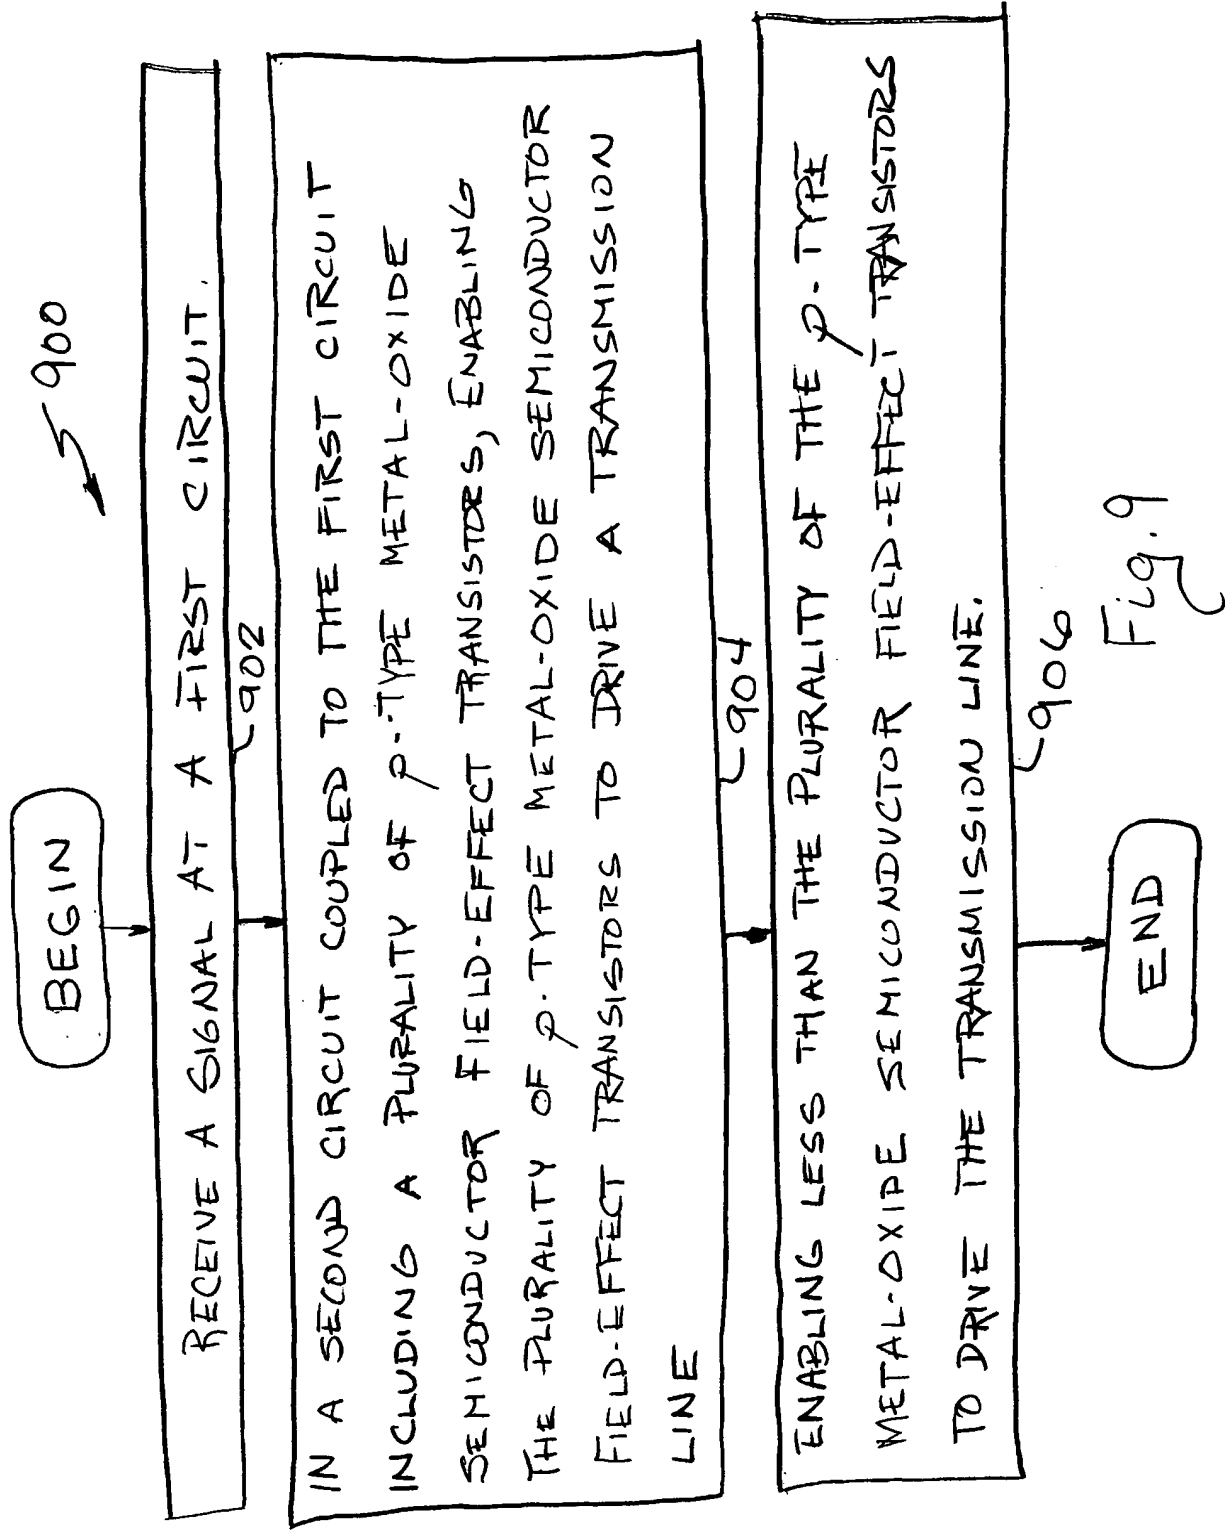 900
BEGIN
RECEIVE A SIGNAL AT A FIRST CIRCUIT.
902
IN A SECOND CIRCUIT COUPLED TO THE FIRST CIRCUIT
INCLUDING A PLURALITY OF p-TYPE METAL-OXIDE
SEMICONDUCTOR FIELD-EFFECT TRANSISTORS, ENABLING
THE PLURALITY OF p-TYPE METAL-OXIDE SEMICONDUCTOR
FIELD-EFFECT TRANSISTORS TO DRIVE A TRANSMISSION
LINE
904
ENABLING LESS THAN THE PLURALITY OF THE p-TYPE
METAL-OXIDE SEMICONDUCTOR FIELD-EFFECT TRANSISTORS
TO DRIVE THE TRANSMISSION LINE.
906
END
Fig. 9